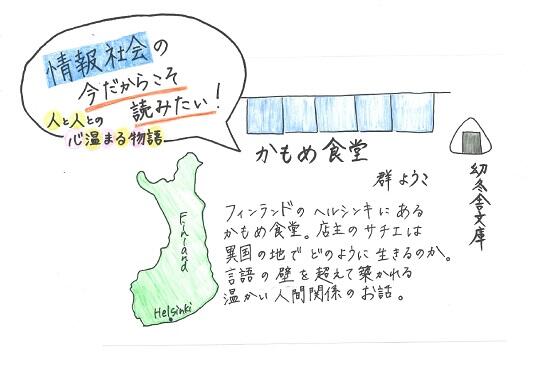 情報社会の
今だからこそ
読みたい!
人と人との
心温まる物語
かもめ食堂
群ようこ
幻冬舎文庫
Finland
Helsinki
フィンランドのヘルシンキにある
かもめ食堂。店主のサチエは
異国の地でどのように生きるのか。
言語の壁を超えて築かれる
温かい人間関係のお話。